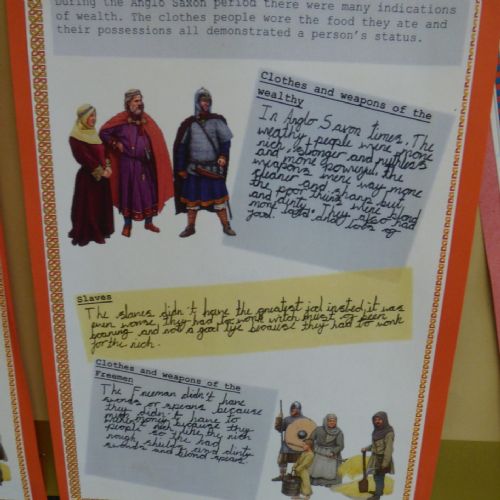 During the Anglo Saxon period there were many indications
of wealth. The clothes people wore the food they ate and
their possessions all demonstrated a person's status.
Clothes and weapons of the
wealthy
In Anglo Saxon times, The
weathy people were more
rich, stonger and ruthless
and more powerful, the
weapons were way more
cleaner and sharp but
the poor things were blond
and dirty. They also had
more land and lots of
food.
Slaves
The slaves didn't have the greatest job insted it was
even worse, they had to work witch must of been
boaring and not a good life because they had to work
for the rich.
Clothes and weapons of the
Freemen
The Freeman didn't have
swords or spears because
they didn't have to
because they
people rich like the rich
so the had
rough shields and dirty
swords and blond spears.